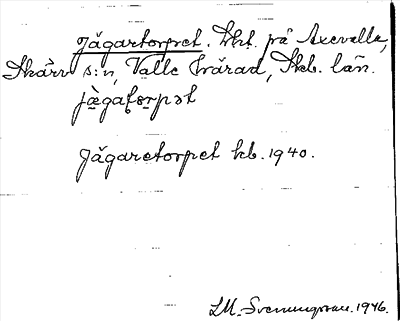 Jägartorpet. Lht. på Axevalla,
Skärv s:n, Valle härad, Skb. län.
Jägaretorpet kb. 1940.
LM. Svenungsson. 1946.